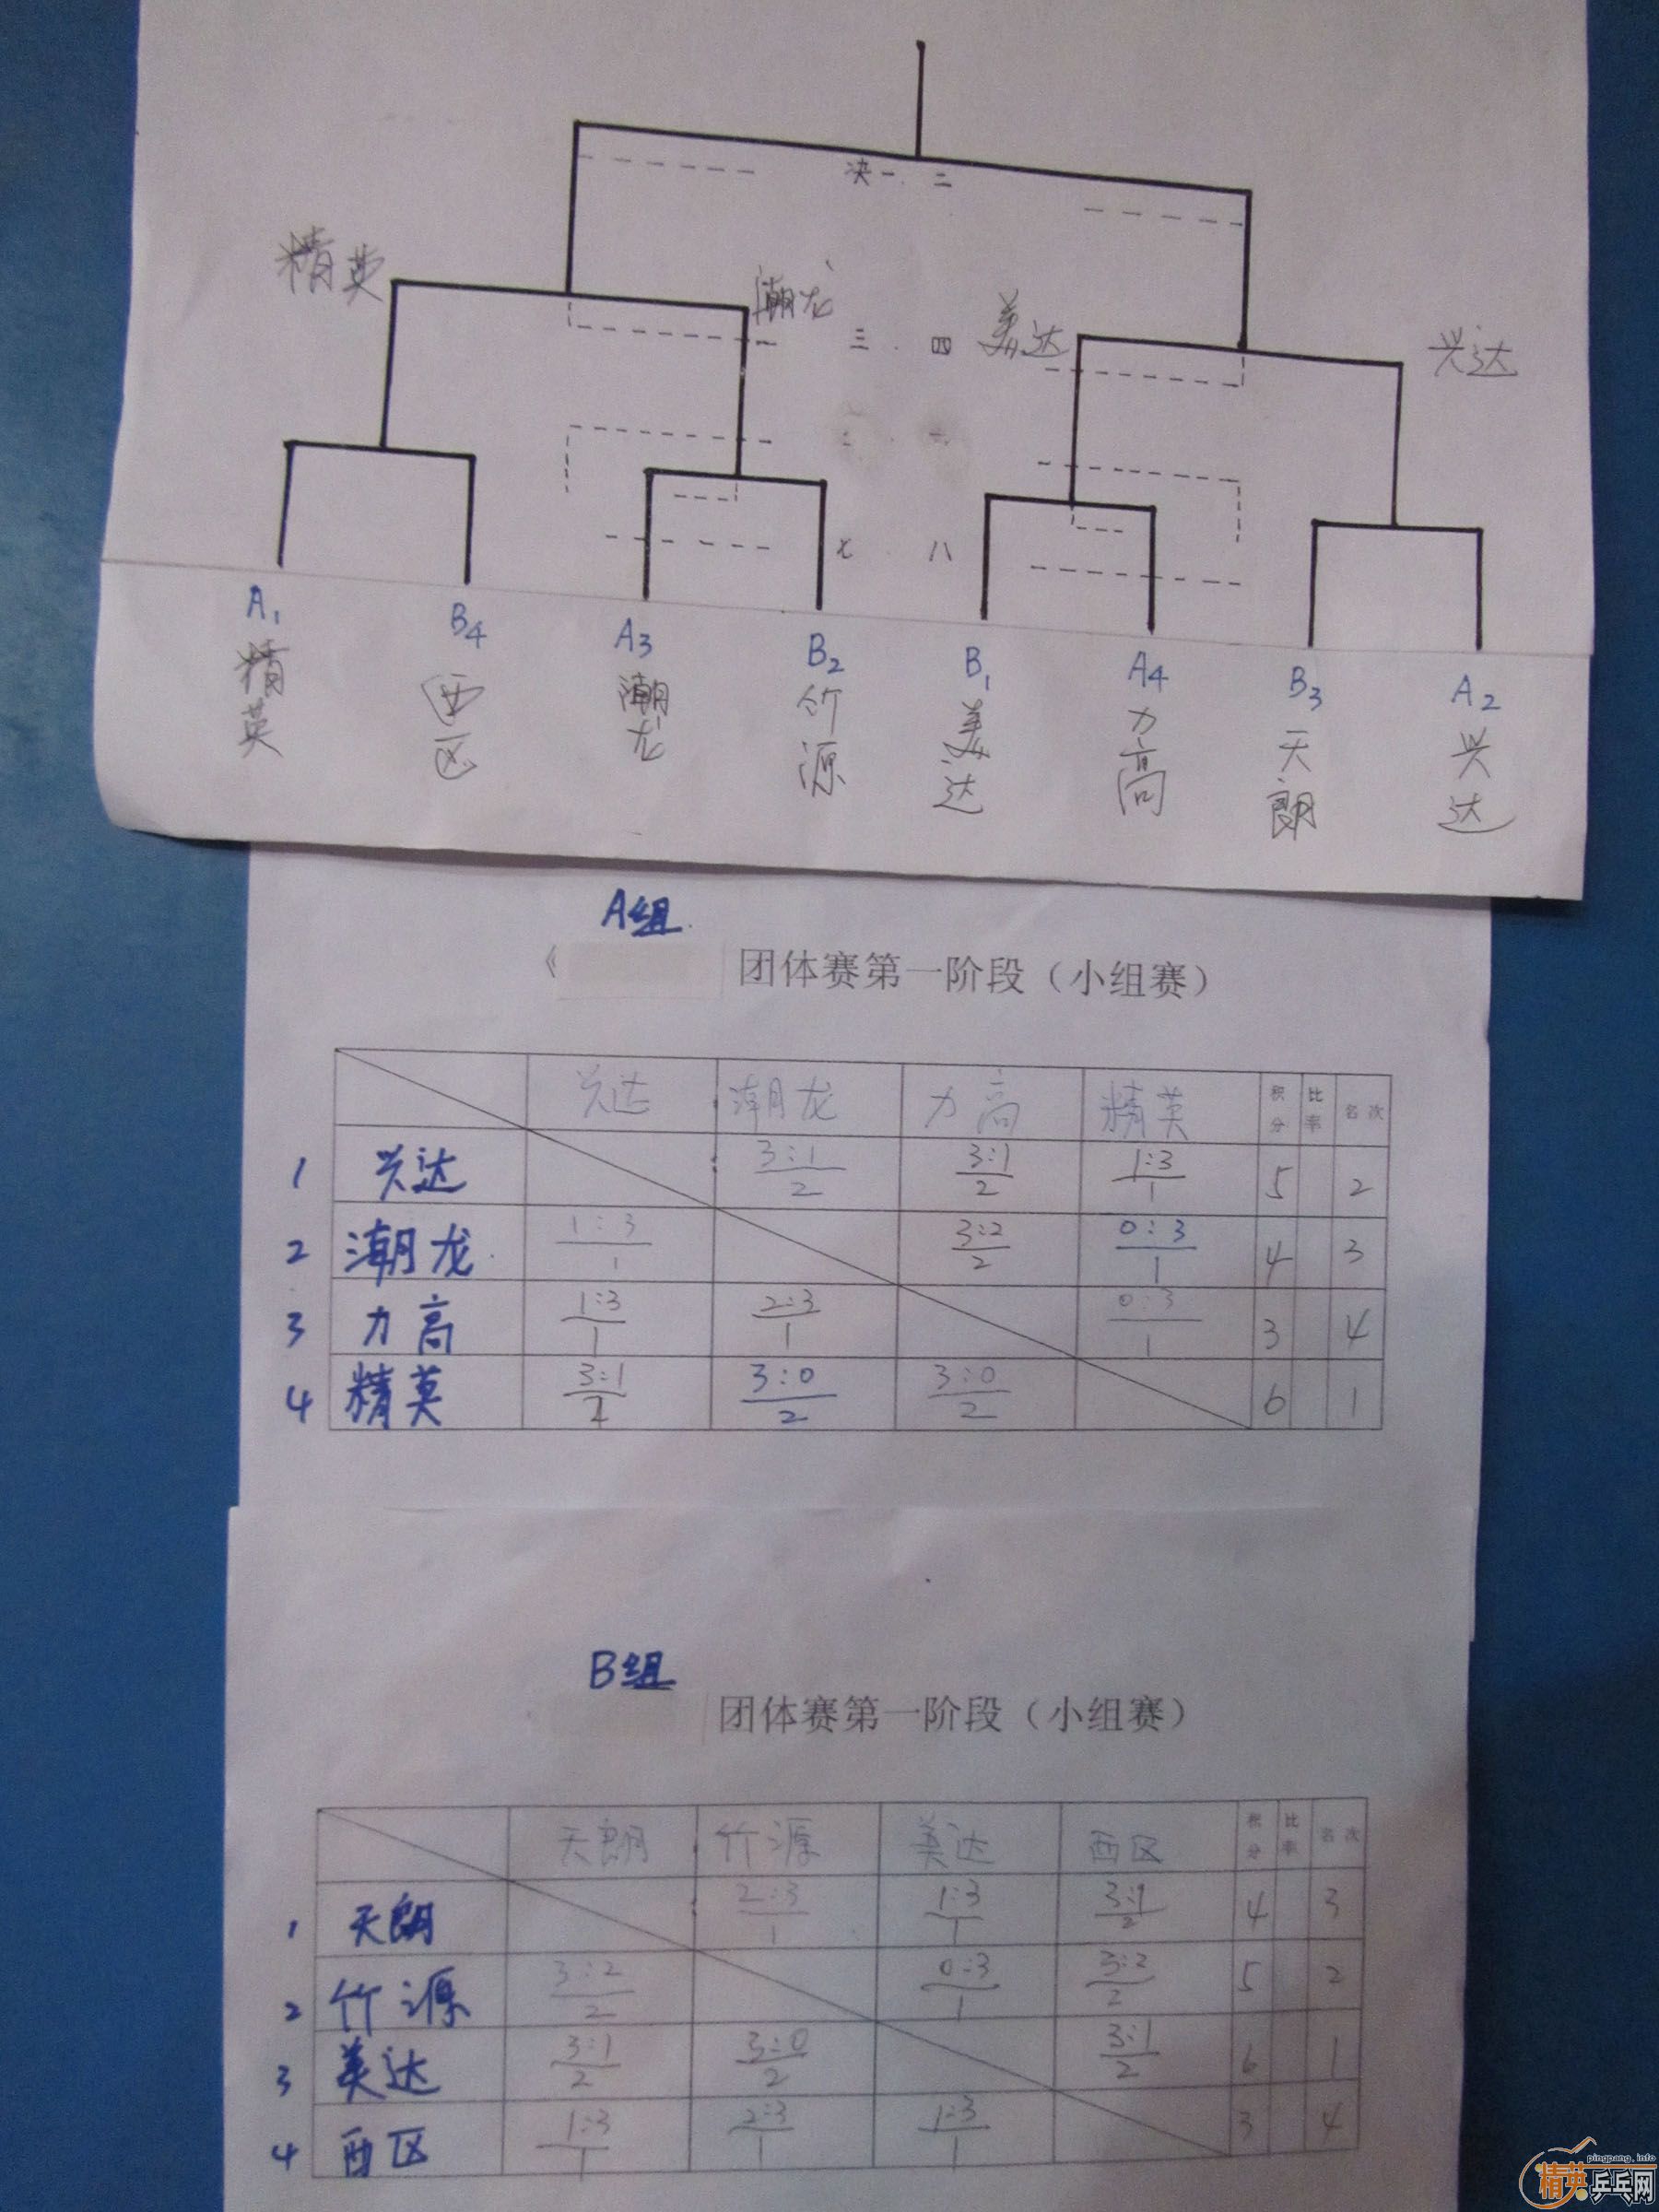 决一. 二
精英
潮龙
三 . 四
美达
兴达
七 . 八
A1 B4 A3 B2 B1 A4 B3 A2
精英 西区 潮龙 竹源 美达 力高 天朗 兴达
A组
《 团体赛第一阶段（小组赛）
兴达 潮龙 力高 精英 积分 比率 名次
1 兴达 3:1 3:1 1:3 5 2
2 2 1
2 潮龙 1:3 3:2 0:3 4 3
1 2 1
3 力高 1:3 2:3 0:3 3 4
1 1 1
4 精英 3:1 3:0 3:0 6 1
2 2 2
B组
团体赛第一阶段（小组赛）
天朗 竹源 美达 西区 积分 比率 名次
1 天朗 2:3 1:3 3:1 4 3
1 1 2
2 竹源 3:2 0:3 3:2 5 2
2 1 2
3 美达 3:1 3:0 3:1 6 1
2 2 2
4 西区 1:3 2:3 1:3 3 4
1 1 1
pingpang.info
精英乒乓网